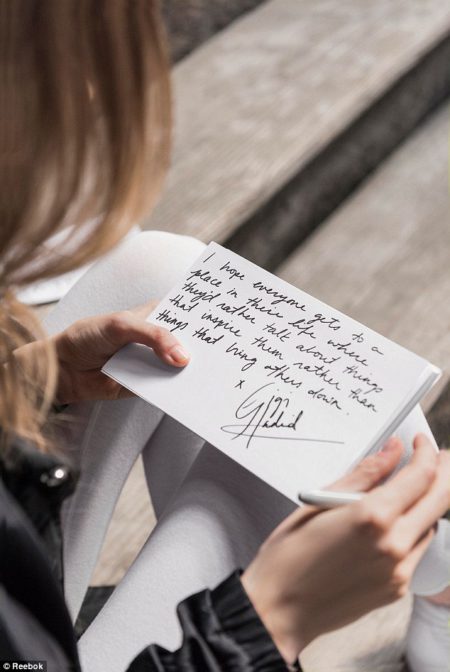 I hope everyone gets to a
place in their life where
they'd rather talk about things
that inspire them rather than
things that bring others down.
x
Gigi
Hadid
© Reebok